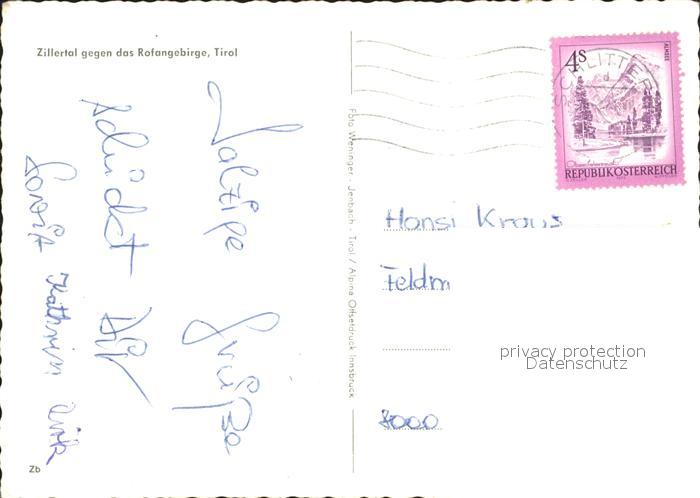 Zillertal gegen das Rofangebirge, Tirol
Salzige
Grüße
schickt
Dir
Kathrin
Zb
Foto Weninger, Jenbach - Tirol / Alpina Offsetdruck Innsbruck
4S
SCHLITTERS
ALMSEE
REPUBLIK ÖSTERREICH
Hansi Kraus
Feldm
8000
privacy protection
Datenschutz